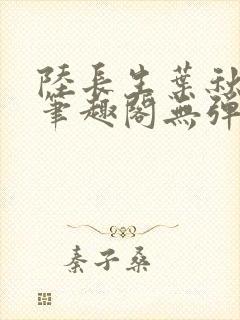 陸長生葉秋
筆趣閣無彈
秦子桑